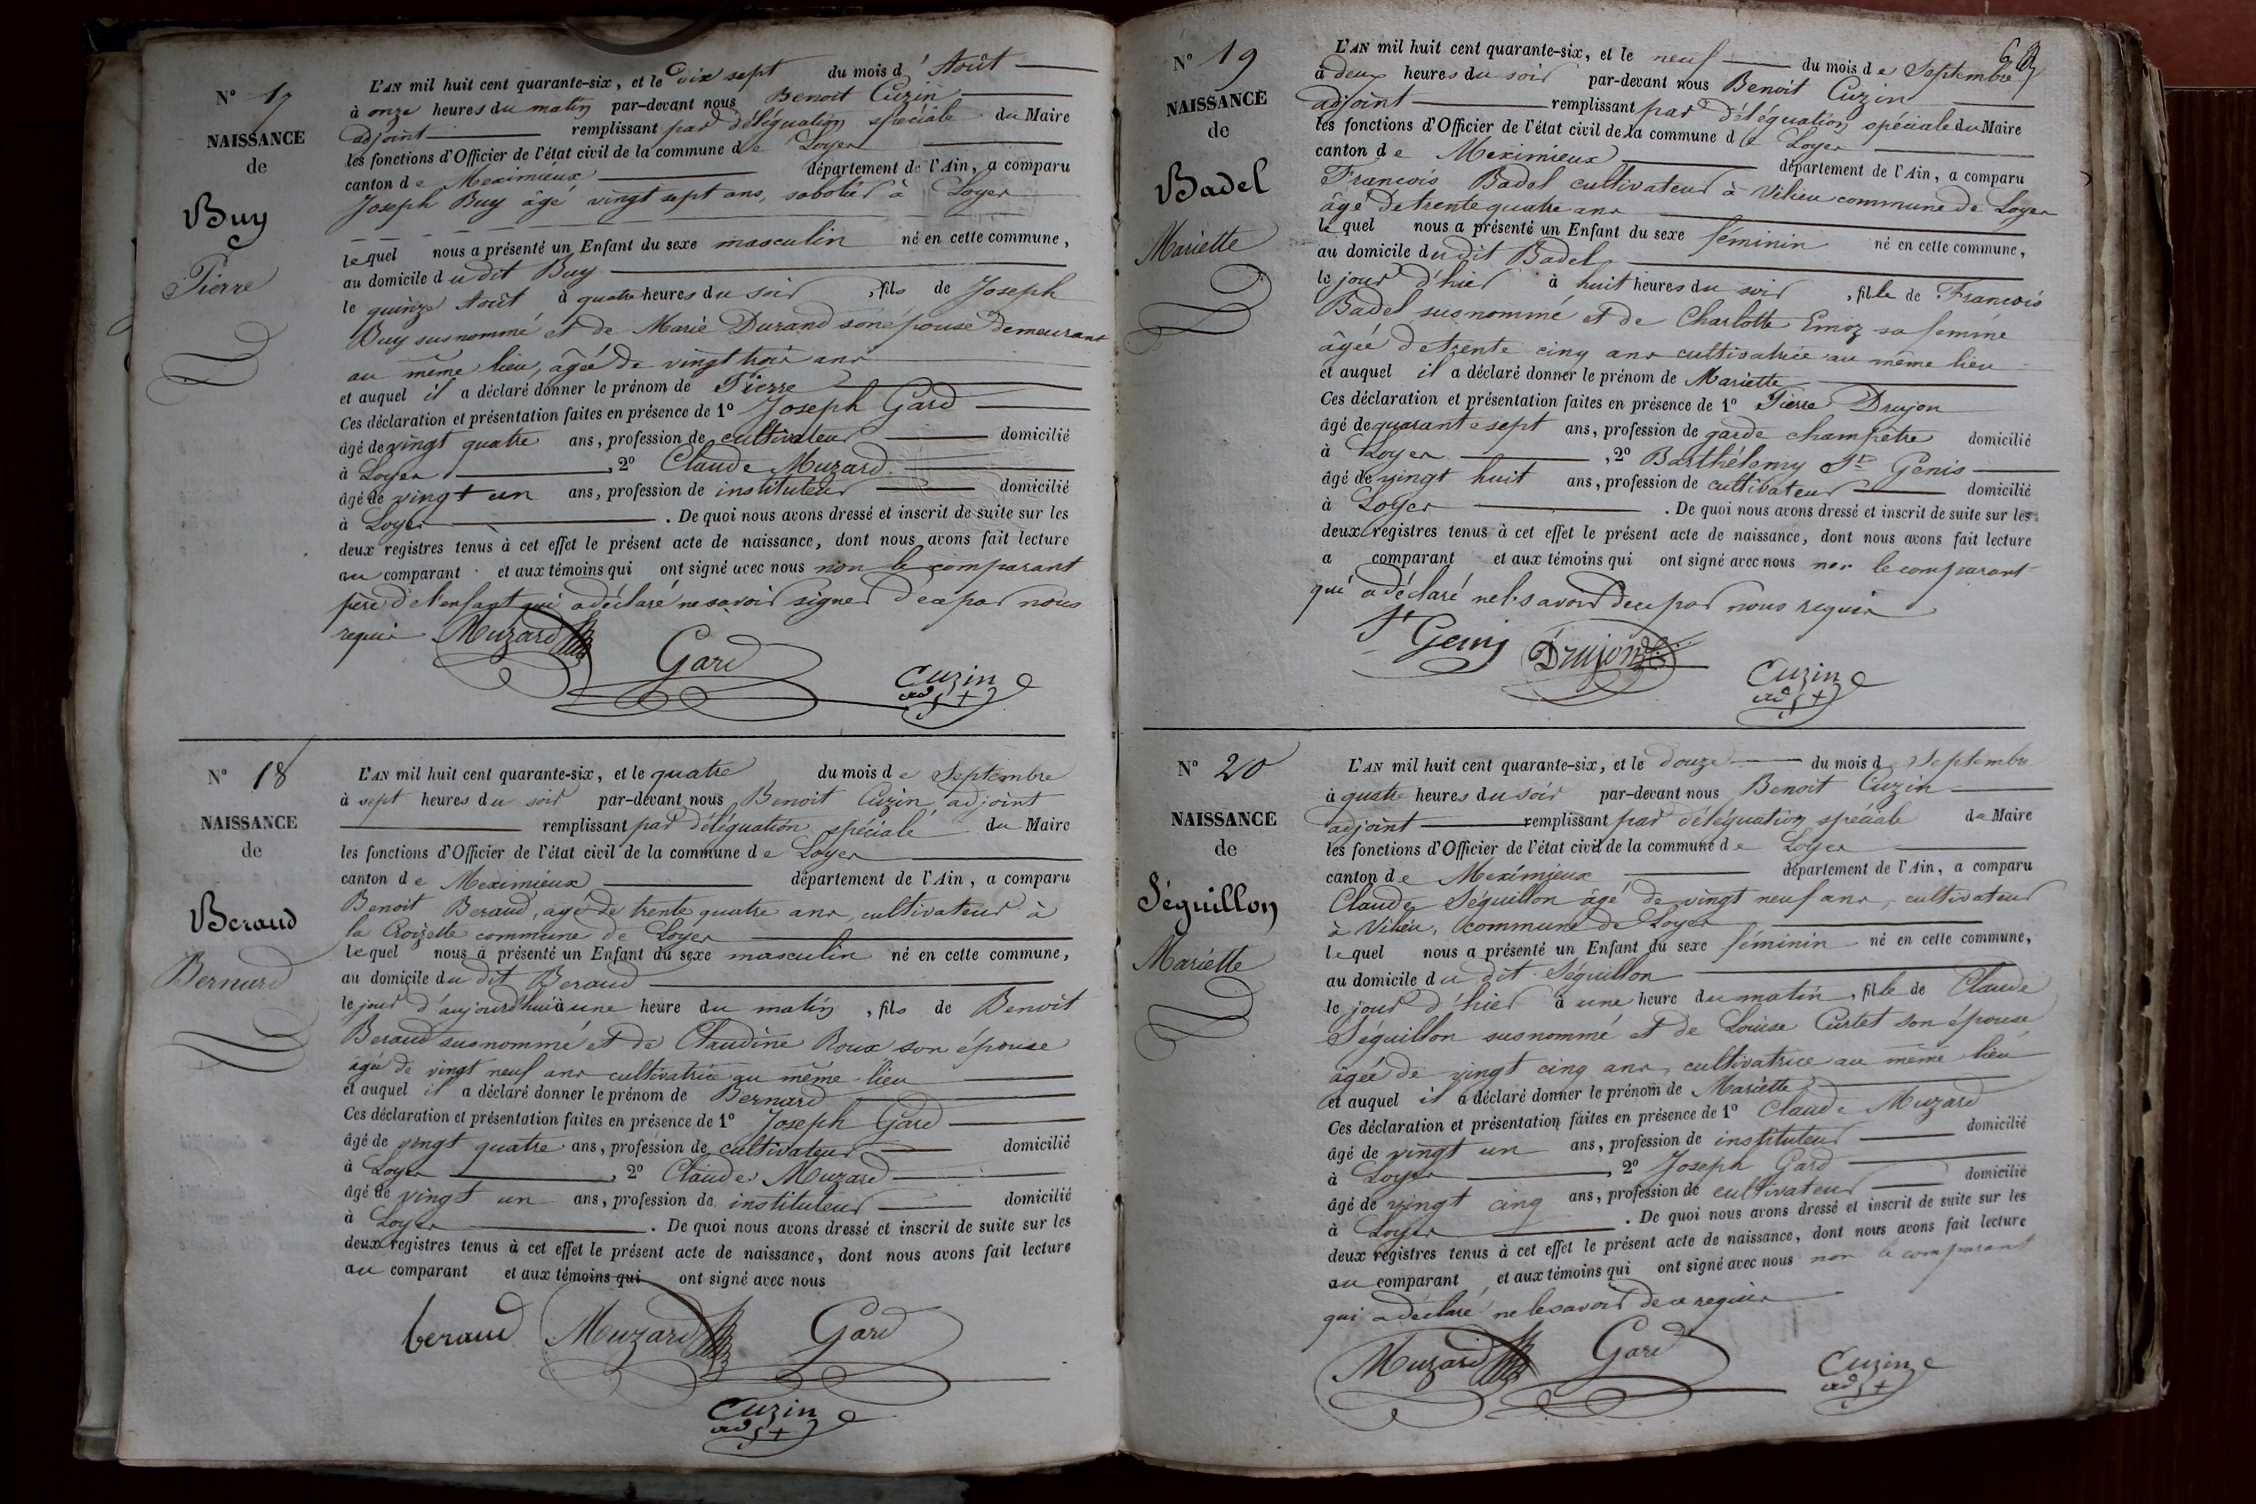 N° 17
NAISSANCE
de
Buy
Pierre
L'AN mil huit cent quarante-six, et le dix sept du mois d'Août
à onze heures du matin par-devant nous Benoit Cuzin
adjoint remplissant par déléguation spéciale du Maire
les fonctions d'Officier de l'état civil de la commune de Loyes
canton de Meximieux département de l'Ain, a comparu
Joseph Buy âgé vingt sept ans, sabotier à Loyes
lequel nous a présenté un Enfant du sexe masculin né en cette commune,
au domicile dudit Buy
le quinze Août à quatre heures du soir, fils de Joseph
Buy susnommé et de Marie Durand son épouse demeurant
au même lieu, âgée de vingt trois ans
et auquel il a déclaré donner le prénom de Pierre
Ces déclaration et présentation faites en présence de 1° Joseph Gard
âgé de vingt quatre ans, profession de cultivateur domicilié
à Loyes, 2° Claude Muzard
âgé de vingt un ans, profession de instituteur domicilié
à Loyes. De quoi nous avons dressé et inscrit de suite sur les
deux registres tenus à cet effet le présent acte de naissance, dont nous avons fait lecture
au comparant et aux témoins qui ont signé avec nous non le comparant
père de l'enfant qui a déclaré ne savoir signer de ce par nous
requis Muzard
Gard
Cuzin
adjt
N° 18
NAISSANCE
de
Beraud
Bernard
L'AN mil huit cent quarante-six, et le quatre du mois de Septembre
à sept heures du soir par-devant nous Benoit Cuzin, adjoint
remplissant par déléguation spéciale du Maire
les fonctions d'Officier de l'état civil de la commune de Loyes
canton de Meximieux département de l'Ain, a comparu
Benoit Beraud, âgé de trente quatre ans, cultivateur à
la Croizette commune de Loyes
lequel nous a présenté un Enfant du sexe masculin né en cette commune,
au domicile du dit Beraud
le jour d'aujourd'hui à une heure du matin, fils de Benoit
Beraud susnommé et de Claudine Roux son épouse
âgée de vingt neuf ans cultivatrice au même lieu
et auquel il a déclaré donner le prénom de Bernard
Ces déclaration et présentation faites en présence de 1° Joseph Gard
âgé de vingt quatre ans, profession de cultivateur domicilié
à Loyes, 2° Claude Muzard
âgé de vingt un ans, profession de instituteur domicilié
à Loyes. De quoi nous avons dressé et inscrit de suite sur les
deux registres tenus à cet effet le présent acte de naissance, dont nous avons fait lecture
au comparant et aux témoins qui ont signé avec nous
beraud Muzard Gard
Cuzin
adjt
N° 19
NAISSANCE
de
Badel
Mariette
L'AN mil huit cent quarante-six, et le neuf du mois de Septembre
à deux heures du soir par-devant nous Benoit Cuzin
adjoint remplissant par déléguation spéciale du Maire
les fonctions d'Officier de l'état civil de la commune de Loyes
canton de Meximieux département de l'Ain, a comparu
François Badel cultivateur à Vilieu commune de Loyes
âgé de trente quatre ans
lequel nous a présenté un Enfant du sexe féminin né en cette commune,
au domicile dudit Badel
le jour d'hier à huit heures du soir, fille de François
Badel susnommé et de Charlotte Emoz sa femme
âgée de trente cinq ans cultivatrice au même lieu
et auquel il a déclaré donner le prénom de Mariette
Ces déclaration et présentation faites en présence de 1° Pierre Drujon
âgé de quarante sept ans, profession de garde champêtre domicilié
à Loyes, 2° Barthélemy St Genis
âgé de vingt huit ans, profession de cultivateur domicilié
à Loyes. De quoi nous avons dressé et inscrit de suite sur les
deux registres tenus à cet effet le présent acte de naissance, dont nous avons fait lecture
a comparant et aux témoins qui ont signé avec nous non le comparant
qui a déclaré ne le savoir de ce par nous requis
St Genis Drujon
Cuzin
adjt
N° 20
NAISSANCE
de
Séguillon
Mariette
L'AN mil huit cent quarante-six, et le douze du mois de Septembre
à quatre heures du soir par-devant nous Benoit Cuzin
adjoint remplissant par déléguation spéciale du Maire
les fonctions d'Officier de l'état civil de la commune de Loyes
canton de Meximieux département de l'Ain, a comparu
Claude Séguillon âgé de vingt neuf ans, cultivateur
à Vilieu, commune de Loyes
lequel nous a présenté un Enfant du sexe féminin né en cette commune,
au domicile du dit Séguillon
le jour d'hier à une heure du matin, fille de Claude
Séguillon susnommé et de Louise Curtet son épouse
âgée de vingt cinq ans, cultivatrice au même lieu
et auquel il a déclaré donner le prénom de Mariette
Ces déclaration et présentation faites en présence de 1° Claude Muzard
âgé de vingt un ans, profession de instituteur domicilié
à Loyes, 2° Joseph Gard
âgé de vingt cinq ans, profession de cultivateur domicilié
à Loyes. De quoi nous avons dressé et inscrit de suite sur les
deux registres tenus à cet effet le présent acte de naissance, dont nous avons fait lecture
au comparant et aux témoins qui ont signé avec nous non le comparant
qui a déclaré ne le savoir de ce requis
Muzard Gard
Cuzin
adjt